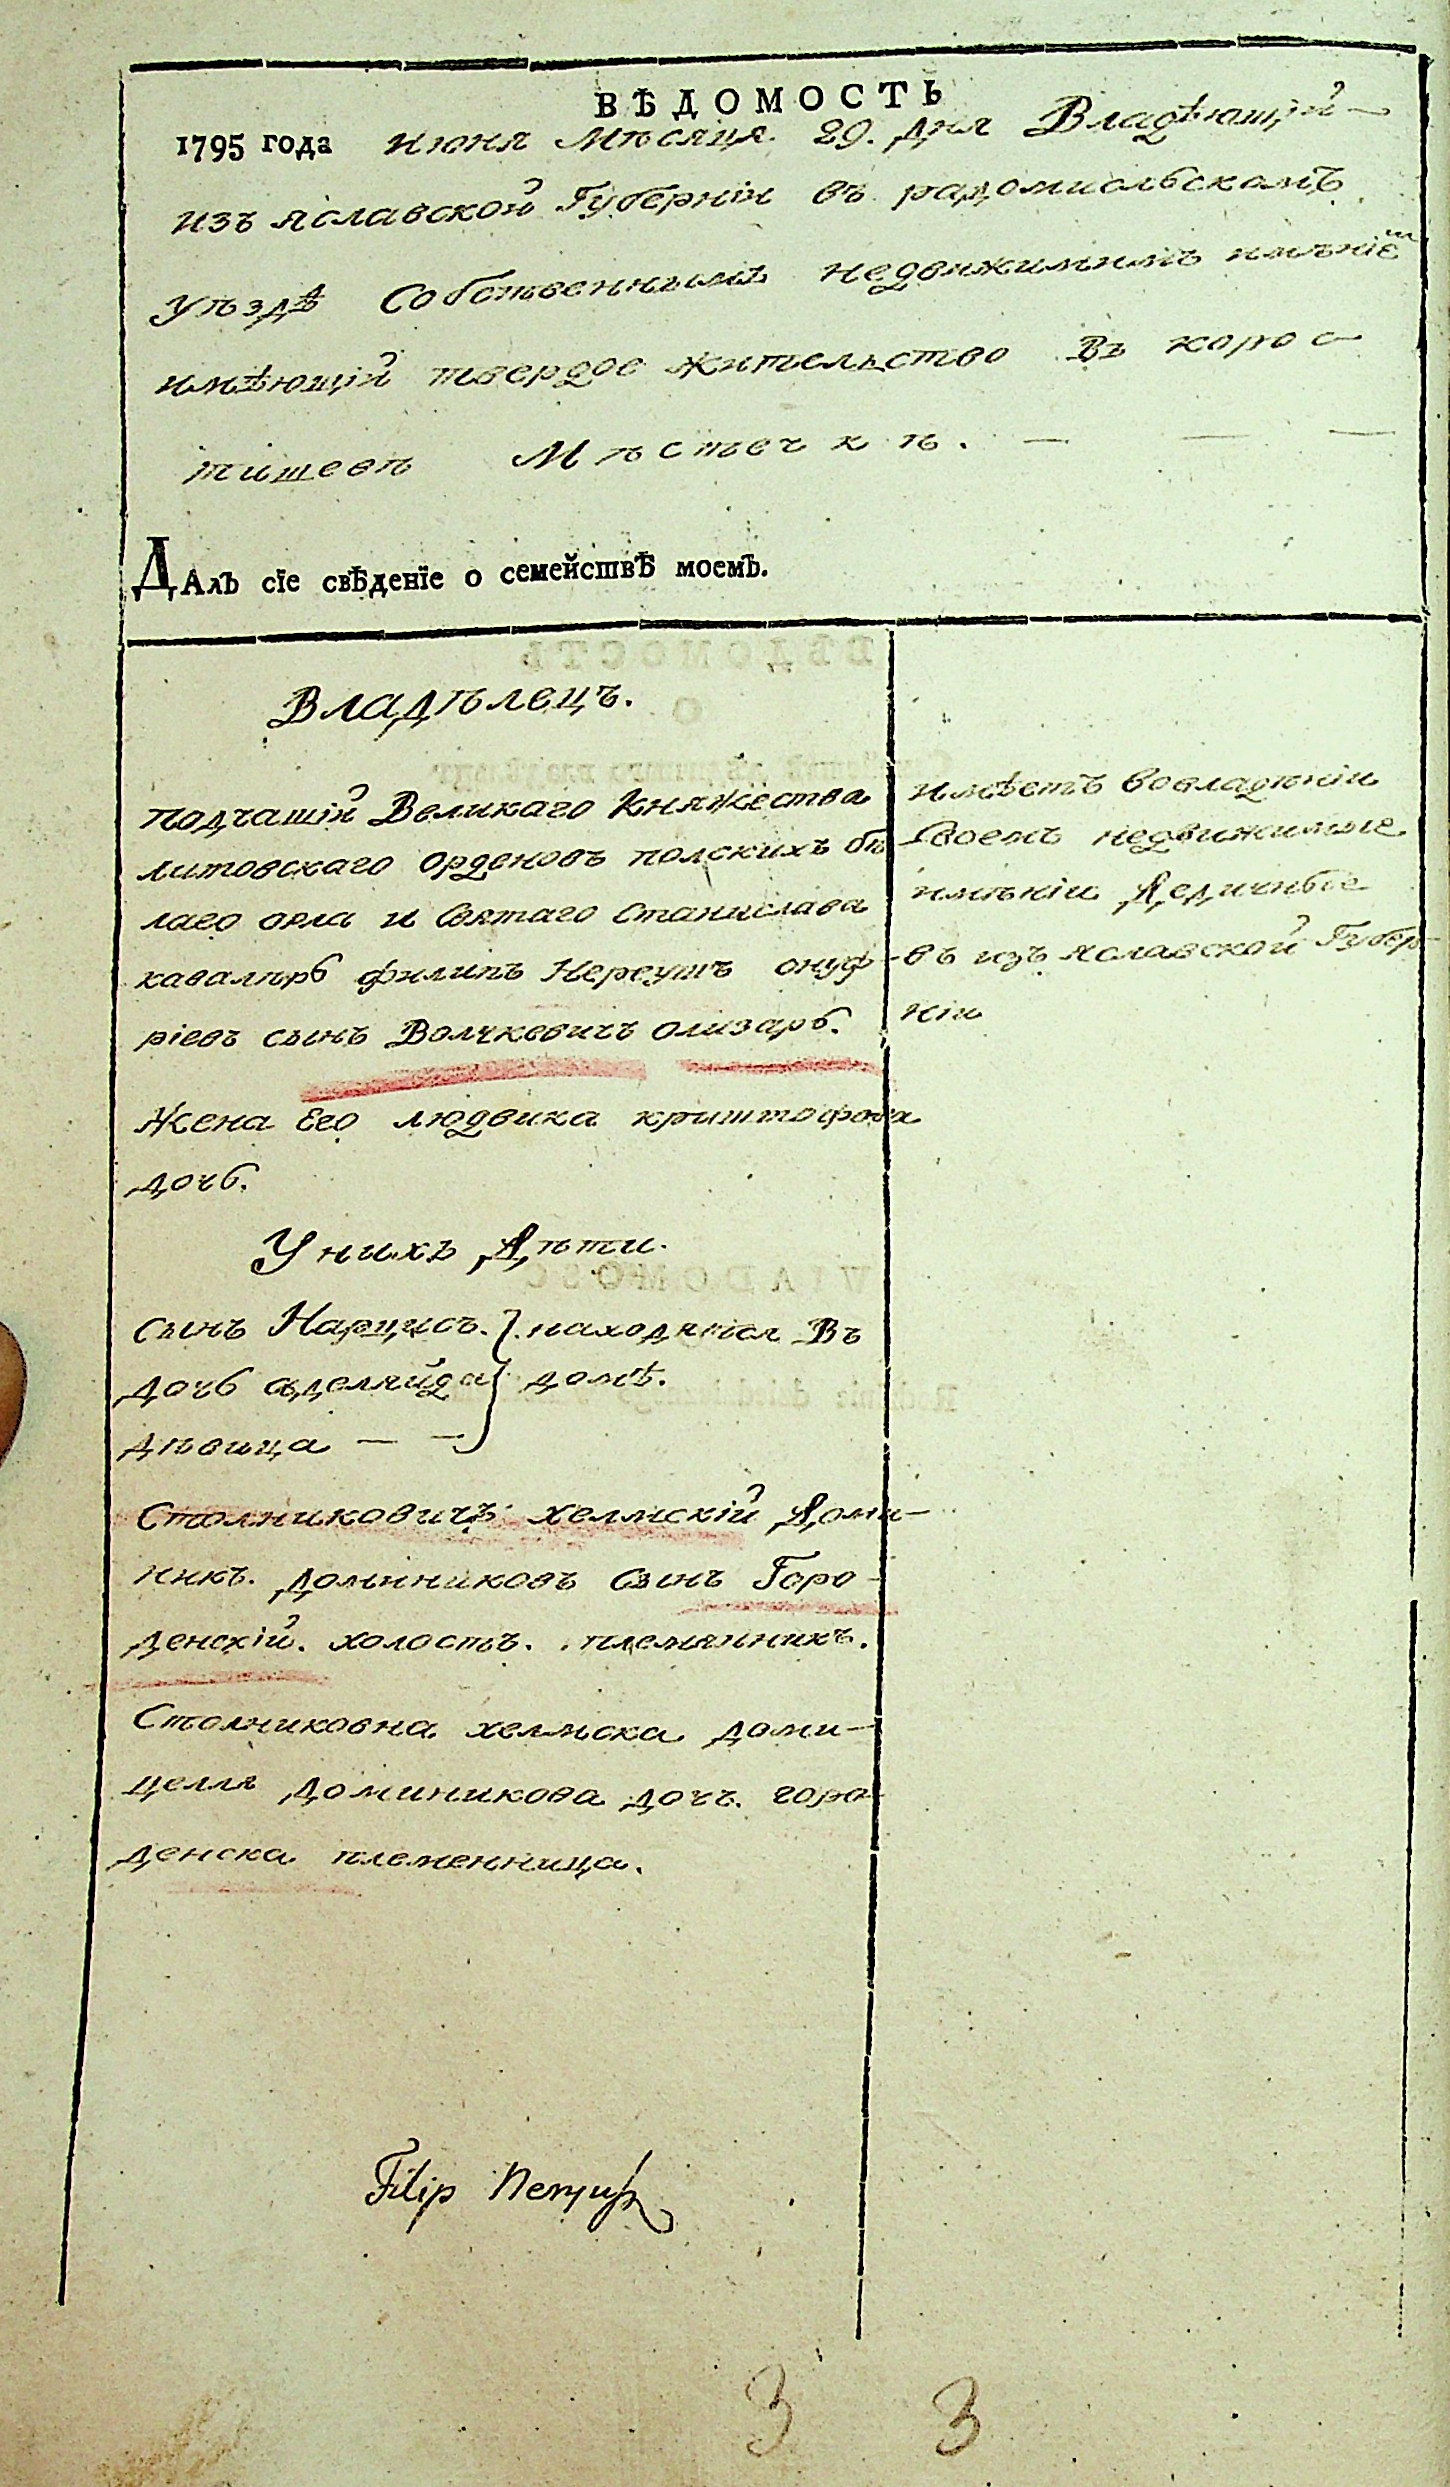 ВѢДОМОСТЬ
1795 года июня Мѣсяца 29. дня Владѣющій
изъ яславской Губерніи въ радомисльскомъ
уѣздѣ Собственнымъ недвижимимъ имѣніем
имѣющій твердое жительство Въ корос
тишевѣ Мѣстечкѣ. — — —
ДАлЪ сїе свѢденїе о семействѢ моемЪ.
Владѣлецъ.
подчашій Великаго Княжества
литовскаго орденовъ полскихъ бѣ
лаго орла и Святаго Станислава
кавалѣръ филипъ Нереушъ онуф
ріевъ сынъ Волчкевичъ олизаръ.
Жена Его людвика криштофова
дочь.
У нихъ Дѣти.
сынъ Нарцисъ. находятся Въ
дочь аделяйда домѣ.
дѣвица — —
Столниковичъ хелмскій Доми—
никъ. доминиковъ Сынъ Горо
денскій. холостъ. племянникъ.
Столниковна хелмска доми—
целля доминикова дочъ. горо
денска племенница.
имѣетъ вовладѣніи
Своемъ недвижимые
имѣніи Дедичные
въ изъ яславской Губер
ніи
Filip
3 3